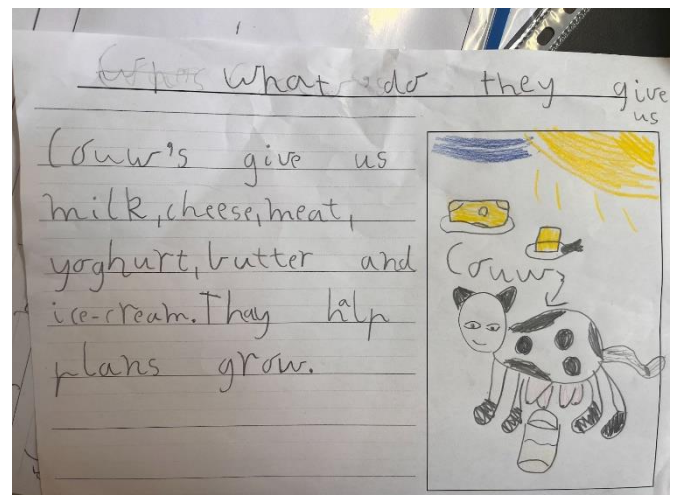 What do they give
us
Couw's give us
milk, cheese, meat,
yoghurt, butter and
ice-cream. Thay halp
plans grow.
Couw